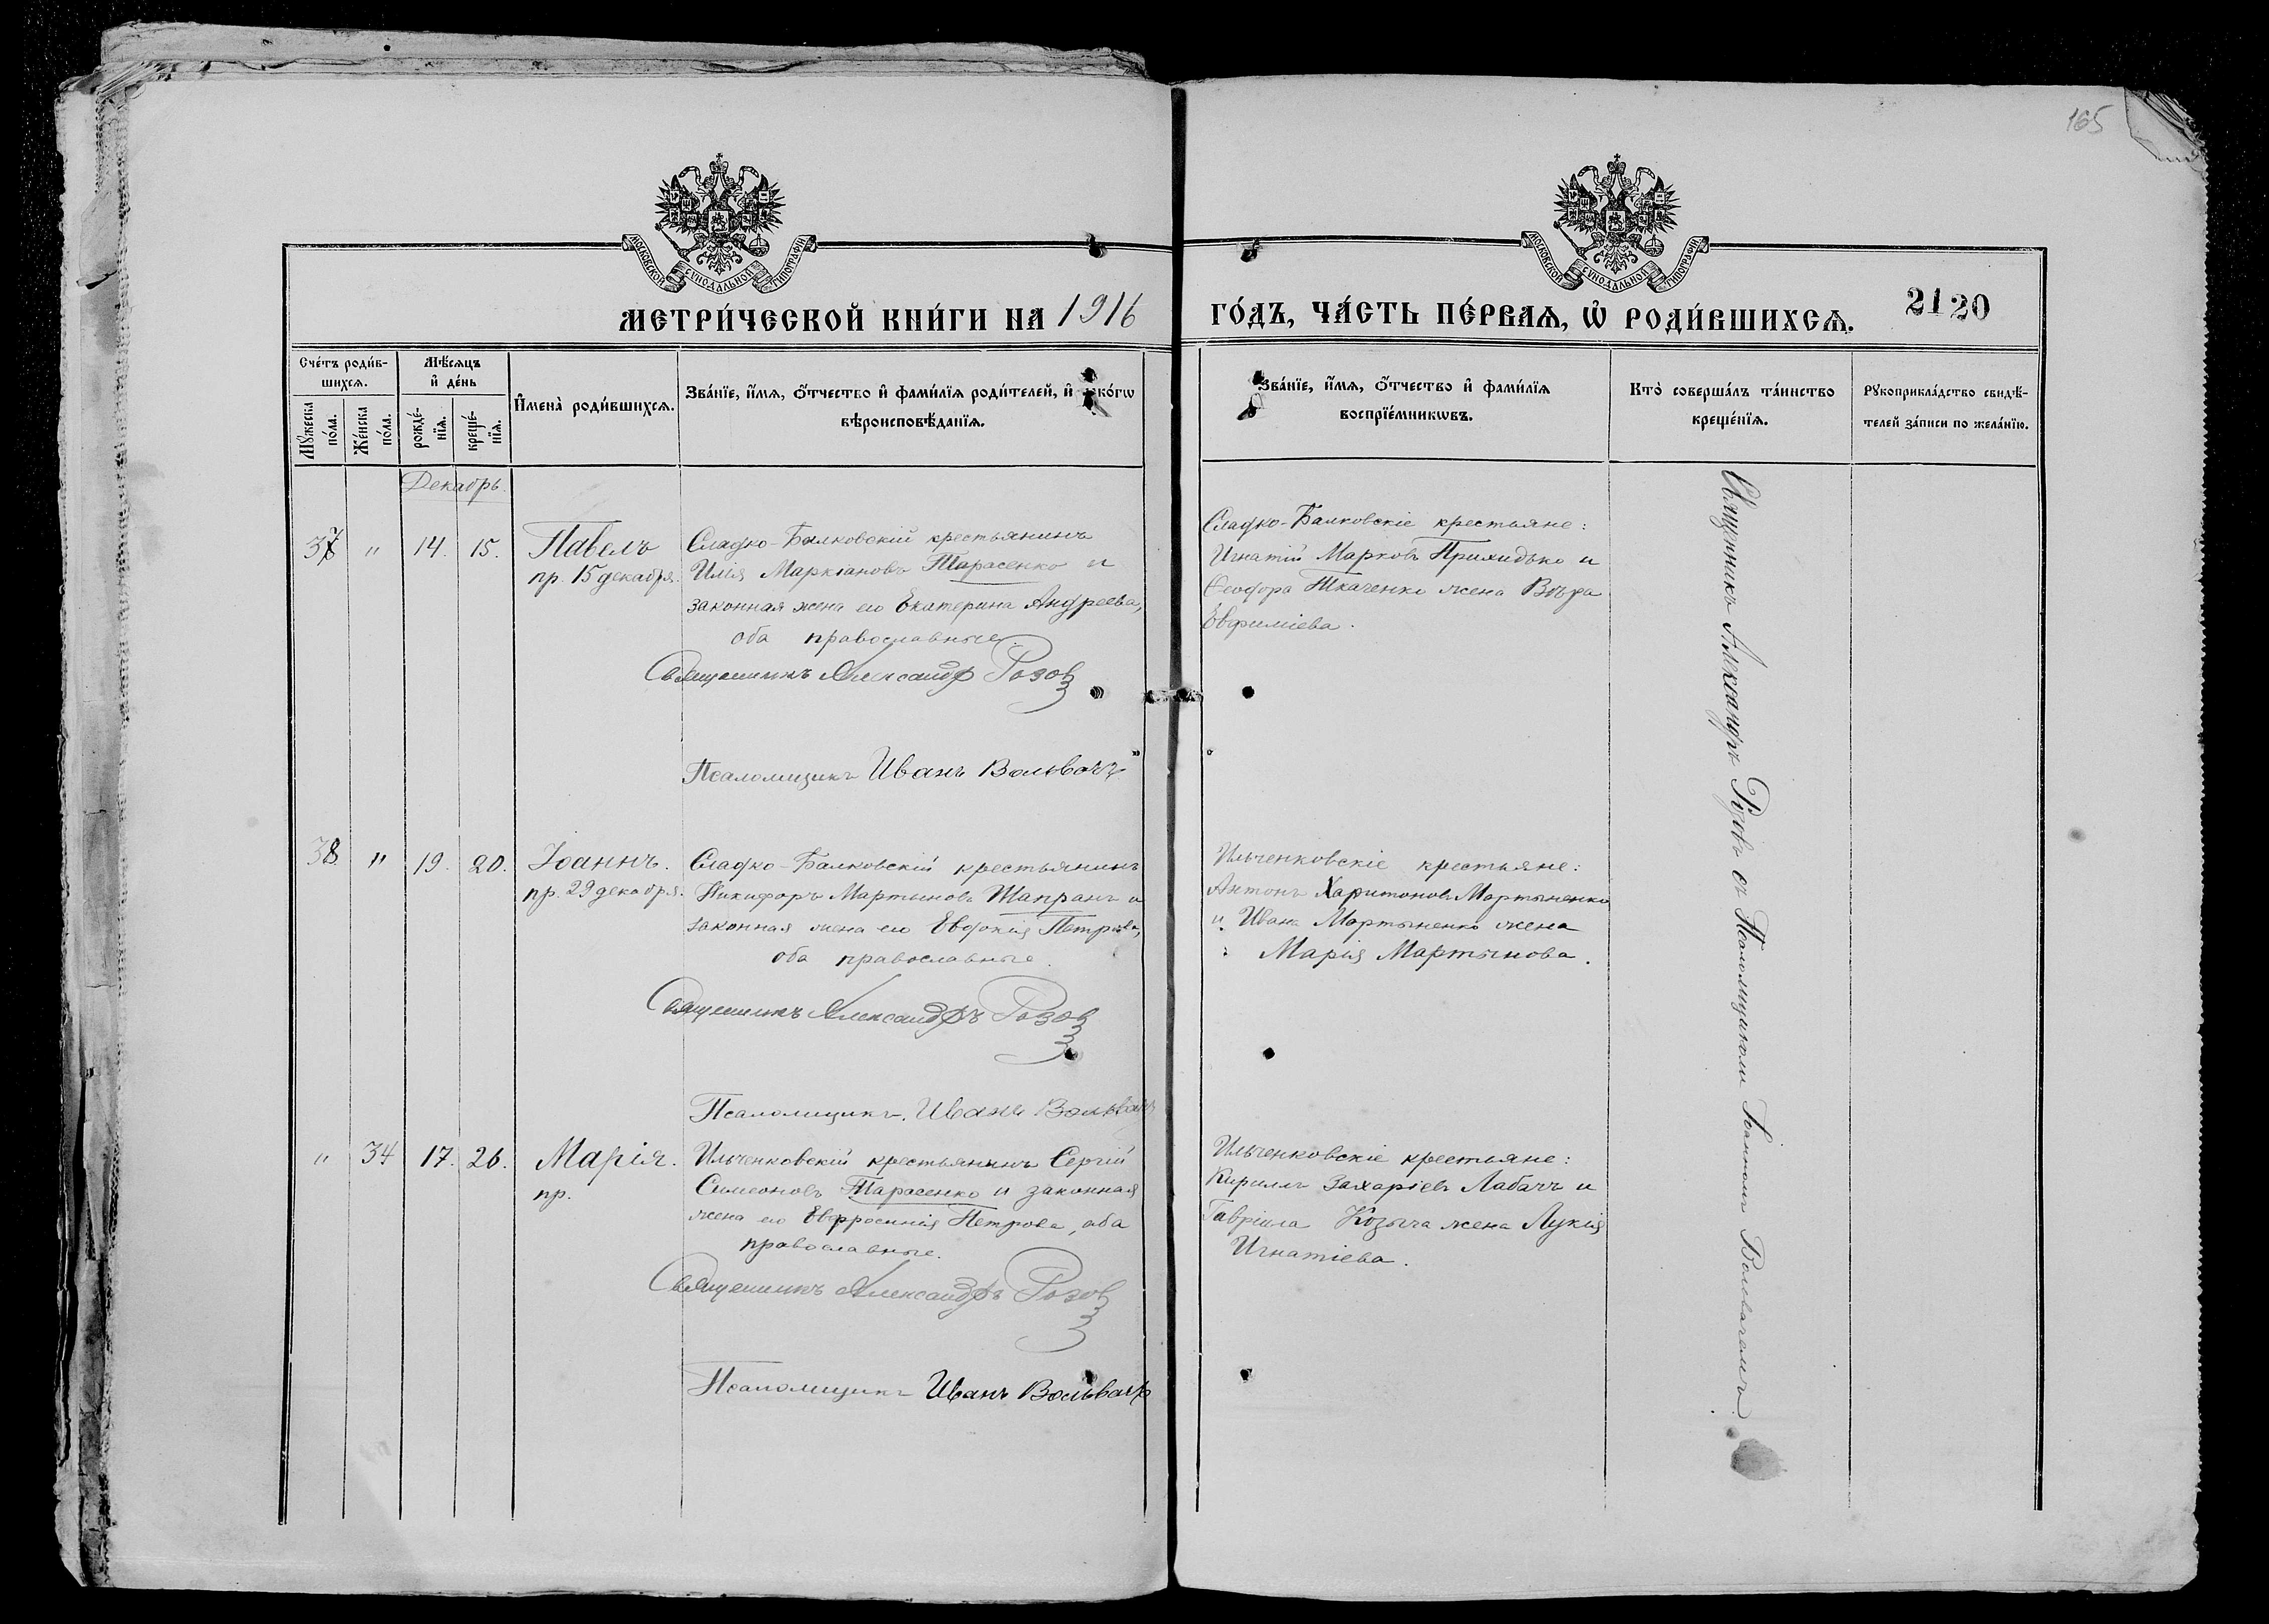 165
МОСКОВСКОЙ СѴНОДАЛЬНОЙ ТИПОГРАФІИ
МОСКОВСКОЙ СѴНОДАЛЬНОЙ ТИПОГРАФІИ
МЕТРИ́ЧЕСКОЙ КНИ́ГИ НА 1916
ГО́ДЪ, ЧА́СТЬ ПЕ́РВАЯ, Ѡ҆ РОДИ́ВШИХСЯ.
2120
Сче́тъ роди́в-
шихся.
Мꙋ́жеска
по́ла.
Же́нска
по́ла.
Мѣ́сяцъ
и҆ де́нь
рожде́-
нїя.
креще́-
нїя.
И҆мена̀ роди́вшихся.
Зва́нїе, и҆́мя, ѻ҆́тчество и҆ фами́лїя роди́телей, и҆ како́гѡ
вѣроисповѣ́данїя.
Зва́нїе, и҆́мя, ѻ҆́тчество и҆ фами́лїя
воспрїе́мникѡвъ.
Кто̀ соверша́лъ та́инство
креще́нїя.
Рꙋкоприкла́дство свидѣ́-
телей за́писи по жела́нїю.
Декабрь.
37 " 14. 15. Павелъ
пр. 15 декабря.
Сладко-Балковскій крестьянинъ
Илія Маркіановъ Тарасенко и
законная жена его Екатерина Андреева,
оба православные.
Священникъ Александр Розов
Псаломщикъ Иванъ Вольвачъ
Сладко-Балковскіе крестьяне:
Игнатій Марковъ Прихидько и
Ѳеодора Ткаченко жена Вѣра
Евфиміева.
38 " 19. 20. Іоаннъ.
пр. 29 декабря.
Сладко-Балковскій крестьянинъ
Никифоръ Мартыновъ Шапранъ и
законная жена его Евдокія Петрова,
оба православные.
Священникъ Александръ Розов
Псаломщикъ Иванъ Вольвачъ
Ильченковскіе крестьяне:
Антонъ Харитоновъ Мартыненко
и Ивана Мартыненко жена
Марія Мартынова.
" 34 17. 26. Марія.
пр.
Ильченковскій крестьянинъ Сергій
Симеоновъ Тарасенко и законная
жена его Евфросинія Петрова, оба
православные.
Священникъ Александръ Розов
Псаломщикъ Иванъ Вольвачъ
Ильченковскіе крестьяне:
Кириллъ Захаріевъ Лабачъ и
Гавріила Козыча жена Лукія
Игнатіева.
Священникъ Александръ Розовъ съ Псаломщикомъ Іоанномъ Вольвачемъ.